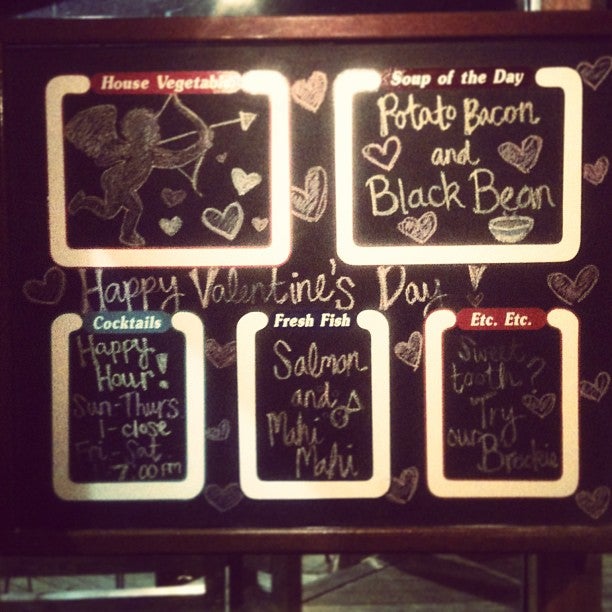 House Vegetable
Soup of the Day
Potato Bacon
and
Black Bean
Happy Valentine's Day!
Cocktails
Happy
Hour!
Sun-Thurs
1-close
Fri-Sat
7:00 PM
Fresh Fish
Salmon
and
Mahi
Mahi
Etc. Etc.
Sweet
tooth?
Try
our
Brookie